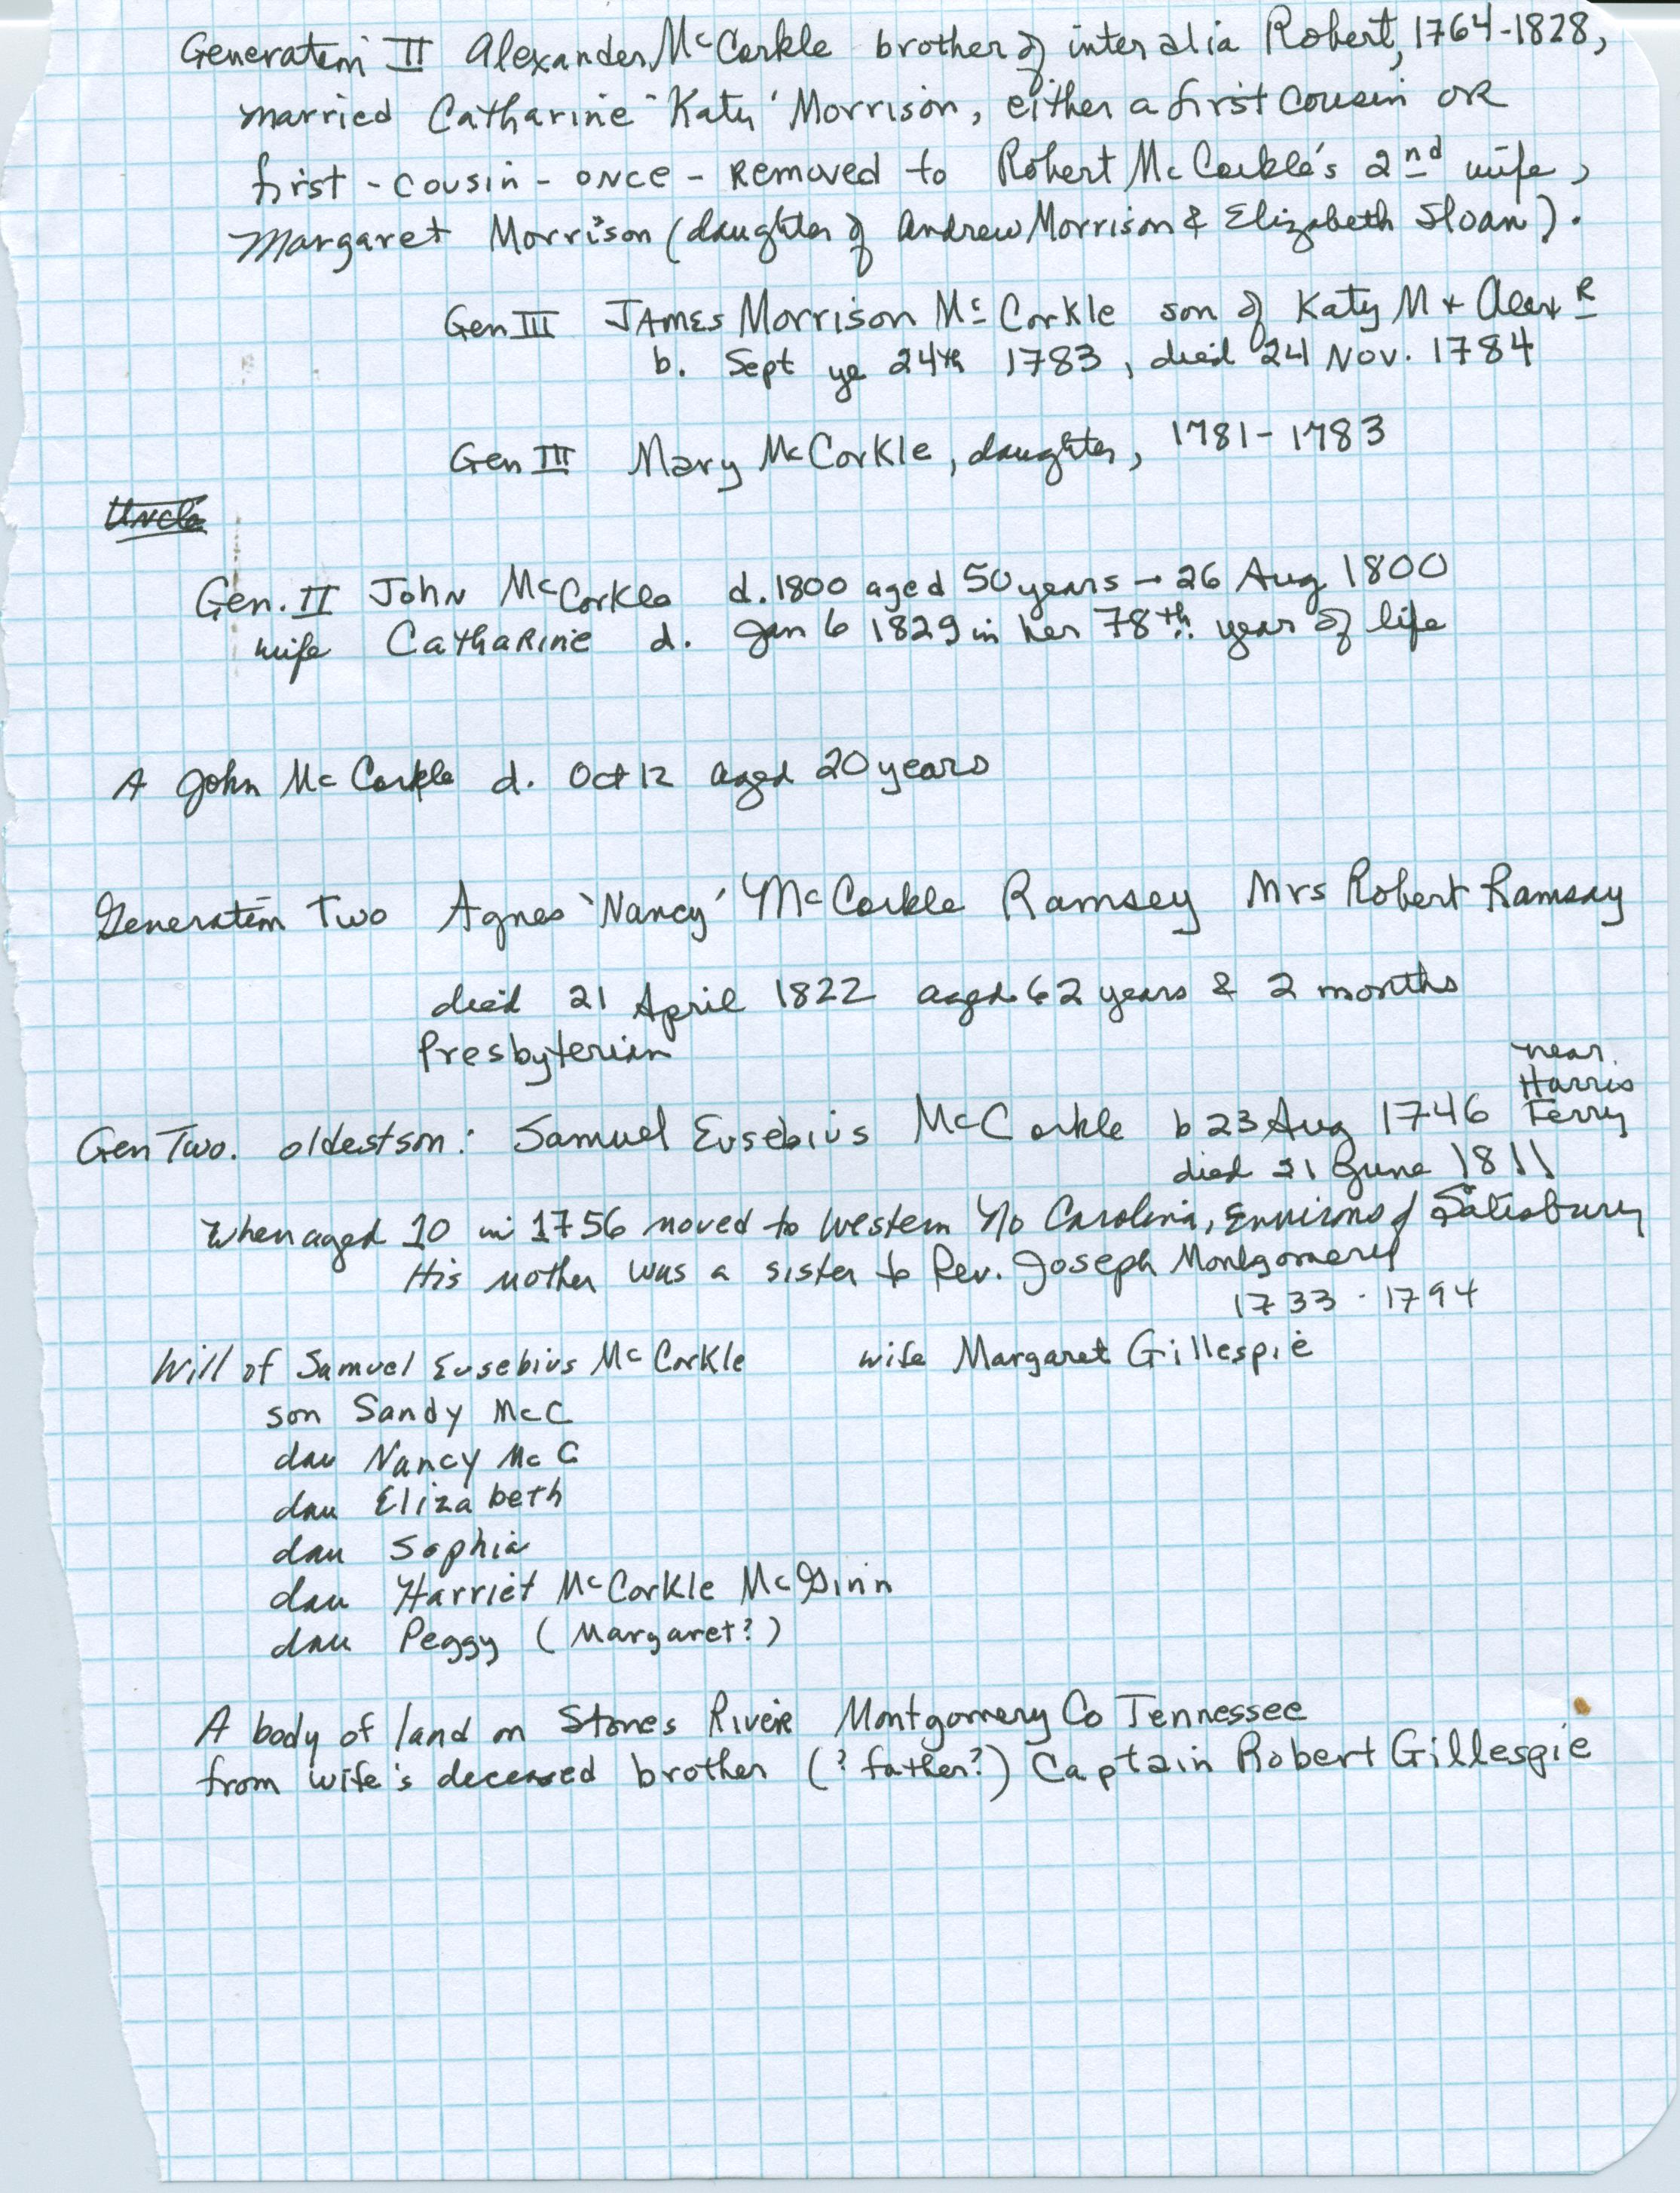 Generation II Alexander McCorkle brother of inter alia Robert, 1764-1828,
married Catharine "Katy" Morrison, either a first cousin OR
first-cousin-once-removed to Robert McCorkle's 2nd wife,
Margaret Morrison (daughter of Andrew Morrison & Elizabeth Sloan).
Gen III James Morrison McCorkle son of Katy M + Alex R
b. Sept ye 24th 1783, died 24 Nov. 1784
Gen III Mary McCorkle, daughter, 1781-1783
Uncle
Gen. II John McCorkle d. 1800 aged 50 years - 26 Aug 1800
wife Catharine d. Jan 6 1829 in her 78th year of life
A John McCorkle d. Oct 12 aged 20 years
Generation Two Agnes 'Nancy' McCorkle Ramsey Mrs Robert Ramsay
died 21 April 1822 aged 62 years & 2 months
Presbyterian
near
Harris
Gen Two. oldest son: Samuel Eusebius McCorkle b 23 Aug 1746 Ferry
died 21 June 1811
When aged 10 in 1756 moved to western No Carolina, Environs of Salisbury
His mother was a sister to Rev. Joseph Montgomery
1733 - 1794
Will of Samuel Eusebius McCorkle wife Margaret Gillespie
son Sandy McC
dau Nancy McC
dau Elizabeth
dau Sophia
dau Harriet McCorkle McGinn
dau Peggy (Margaret?)
A body of land on Stones River Montgomery Co Tennessee
from wife's deceased brother (? father?) Captain Robert Gillespie